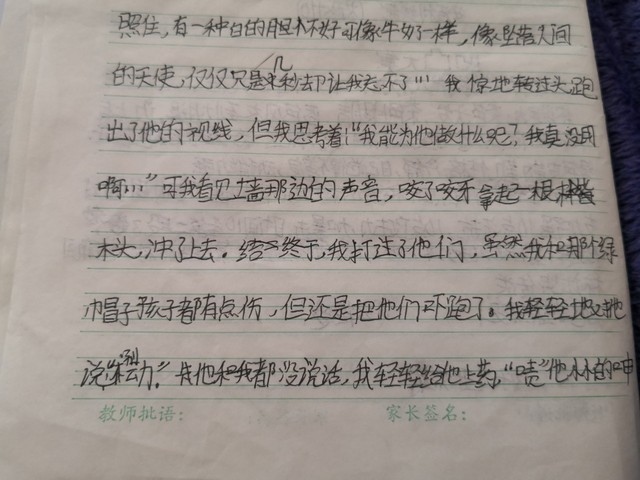 照住，有一种白的胆不好可像牛奶了一样，像坠落人间
的天使，仅仅只是几秒却让我忘不了！！！我惊地转过头跑
出了他的视线，但我思考着！“我能为他做什么呢？我真没用
啊…”可我看见墙那边的声音，咬了咬牙拿起一根
木头，冲了上去。终于，我打过了他们，虽然我和那个绿
巾帽子孩子都有点伤，但还是把他们吓跑了。我轻轻地对他
说“别动”他和我都没说话，我轻轻给他上药，“啧”他小小的呻
教师批语： 家长签名：